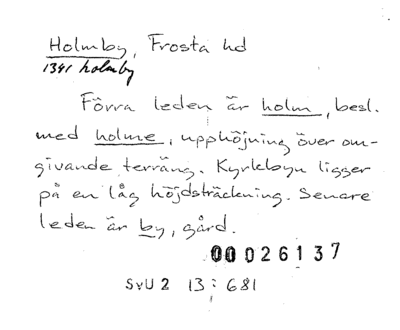 Holmby, Frosta hd
1341 holmby
Förra leden är holm, besl.
med holme, upphöjning över om-
givande terräng. Kyrkbyn ligger
på en låg höjdsträckning. Senare
leden är by, gård.
00026137
SvU2 13:681